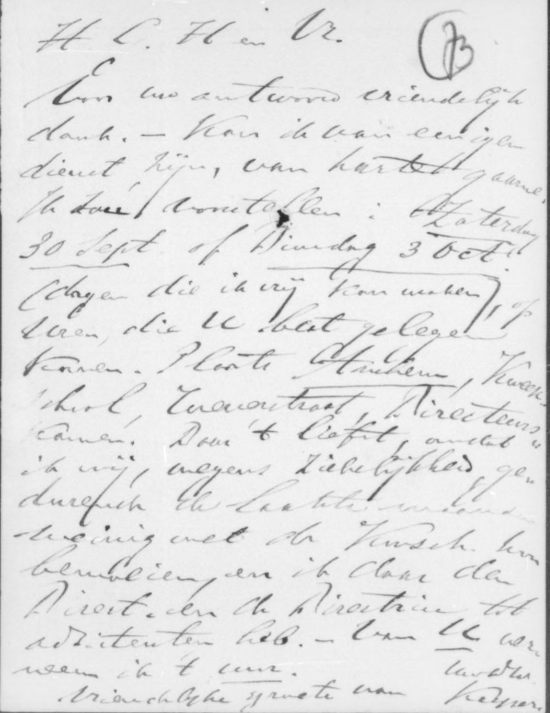 H L. H en Vr.
Voor uw antwoord vriendelijk
dank. – Kan ik van eenigen
dienst zijn, van harte gaarne.
Ik zou voorstellen: Zaterdag
30 Sept of Dinsdag 3 Oct.
(dagen die ik vrij kan maken), op
uren, die U best gelegen
komen. Plaats Arnhem, Kweek-
school, straat, Directeurs-
kamer. Daar 't liefst, omdat
ik mij, wegens ziekelijkheid, ge-
durende de laatste maanden
weinig met de Kwsch. kon
bemoeien, en ik daar dan
Direct. en de Directrice tot
adsistenten heb. – Van U ver-
neem ik 't uur.
Vriendelijke groete van